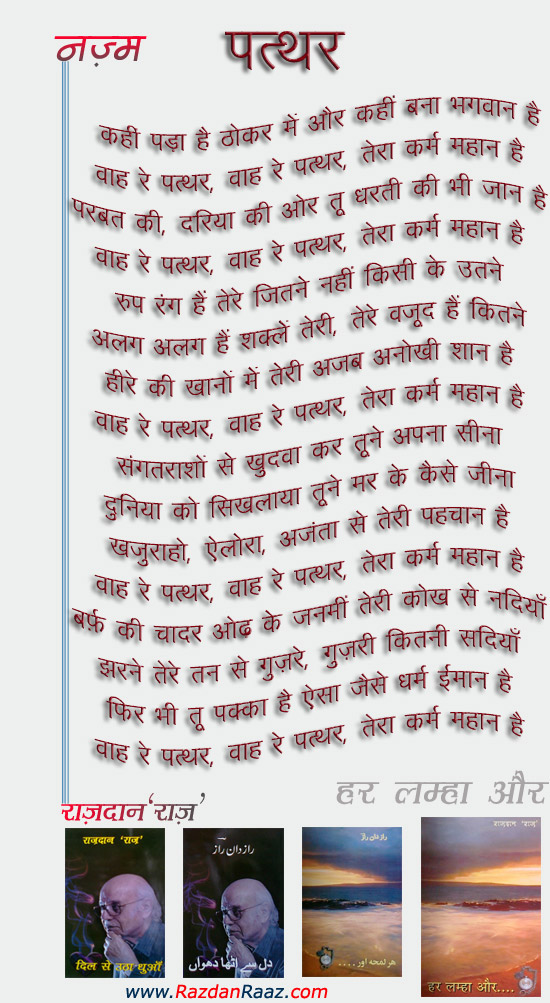 नज़्म
पत्थर
कहीं पड़ा है ठोकर में और कहीं बना भगवान है
वाह रे पत्थर, वाह रे पत्थर, तेरा कर्म महान है
परबत की, दरिया की ओर तू धरती की भी जान है
वाह रे पत्थर, वाह रे पत्थर, तेरा कर्म महान है
रुप रंग हैं तेरे जितने नहीं किसी के उतने
अलग अलग हैं शक्लें तेरी, तेरे वजूद हैं कितने
हीरे की खानों में तेरी अजब अनोखी शान है
वाह रे पत्थर, वाह रे पत्थर, तेरा कर्म महान है
संगतराशों से खुदवा कर तूने अपना सीना
दुनिया को सिखलाया तूने मर के कैसे जीना
खजुराहो, ऐलोरा, अजंता से तेरी पहचान है
वाह रे पत्थर, वाह रे पत्थर, तेरा कर्म महान है
बर्फ़ की चादर ओढ़ के जनमीं तेरी कोख से नदियाँ
झरने तेरे तन से गुज़रे, गुज़री कितनी सदियाँ
फिर भी तू पक्का है ऐसा जैसे धर्म ईमान है
वाह रे पत्थर, वाह रे पत्थर, तेरा कर्म महान है
हर लम्हा और
राज़दान‘राज़’
राज़दान ‘राज़’
दिल से उठा धुआँ
رازدان رازؔ
دل سے اٹھا دھواں
رازدان رازؔ
ہر لمحہ اور....
राज़दान ‘राज़’
हर लम्हा और....
www.RazdanRaaz.com